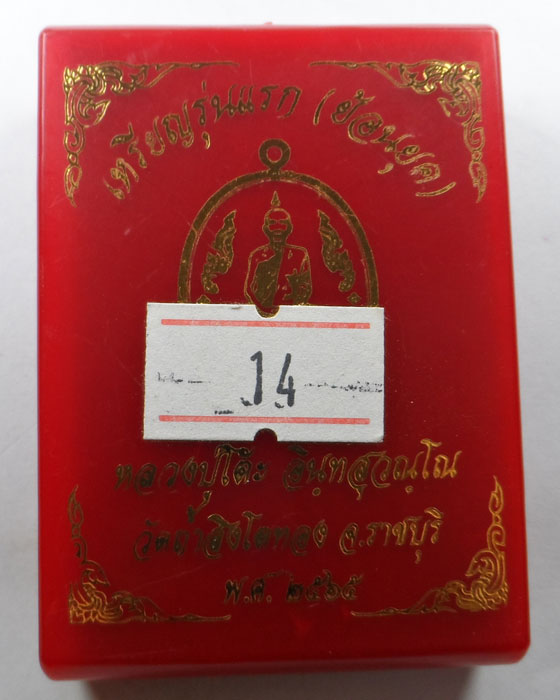 เหรียญรุ่นแรก (ย้อนยุค)
14
หลวงปู่โต๊ะ อินฺทสุวณฺโณ
วัดถ้ำสิงโตทอง จ.ราชบุรี
พ.ศ. ๒๕๖๕